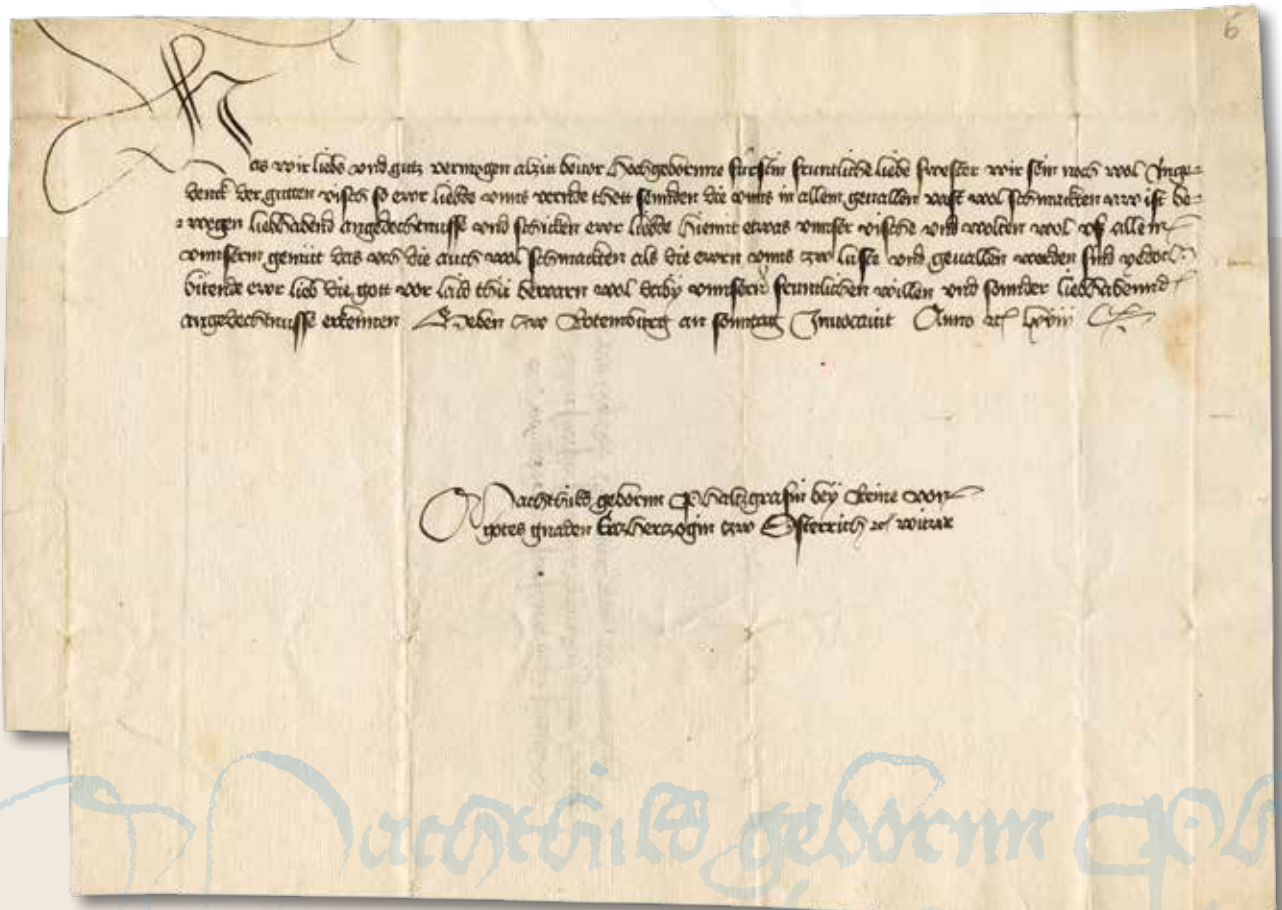 6
Was wir liebs vnd gutz vermogen alzin beuor Hochgebornne furstin fruntliche liebe swester wir sein noch wol Inge-
denck der gutten visch so ewr liebde vnns werde thett sennden die vnns in allem geuallen vast wol schmackten vnd ist be-
wegen liebhabend angedechtnusse vnd schicken ewr liebde hiemit etwas vnnser vische vnd wolten wol vß allem
vnnserm gemüt das uch die auch wol schmackten als die ewrn vnns zw lust vnd geuallen worden sind
bitende ewr lieb die gott vor laid thü bewarn wol daby vnnsern fruntlichen willen vnd sonnder liebhabennd
angedechtnusse erkennen Geben zw Rotemburg an sonntag Inuocauit Anno etc lxviij
Machthild gebornn Phaltzgrafin bey Reine von
gotes gnaden Ertzhertzogin zw Osterrich etc witwe
Machthild geborn Ph